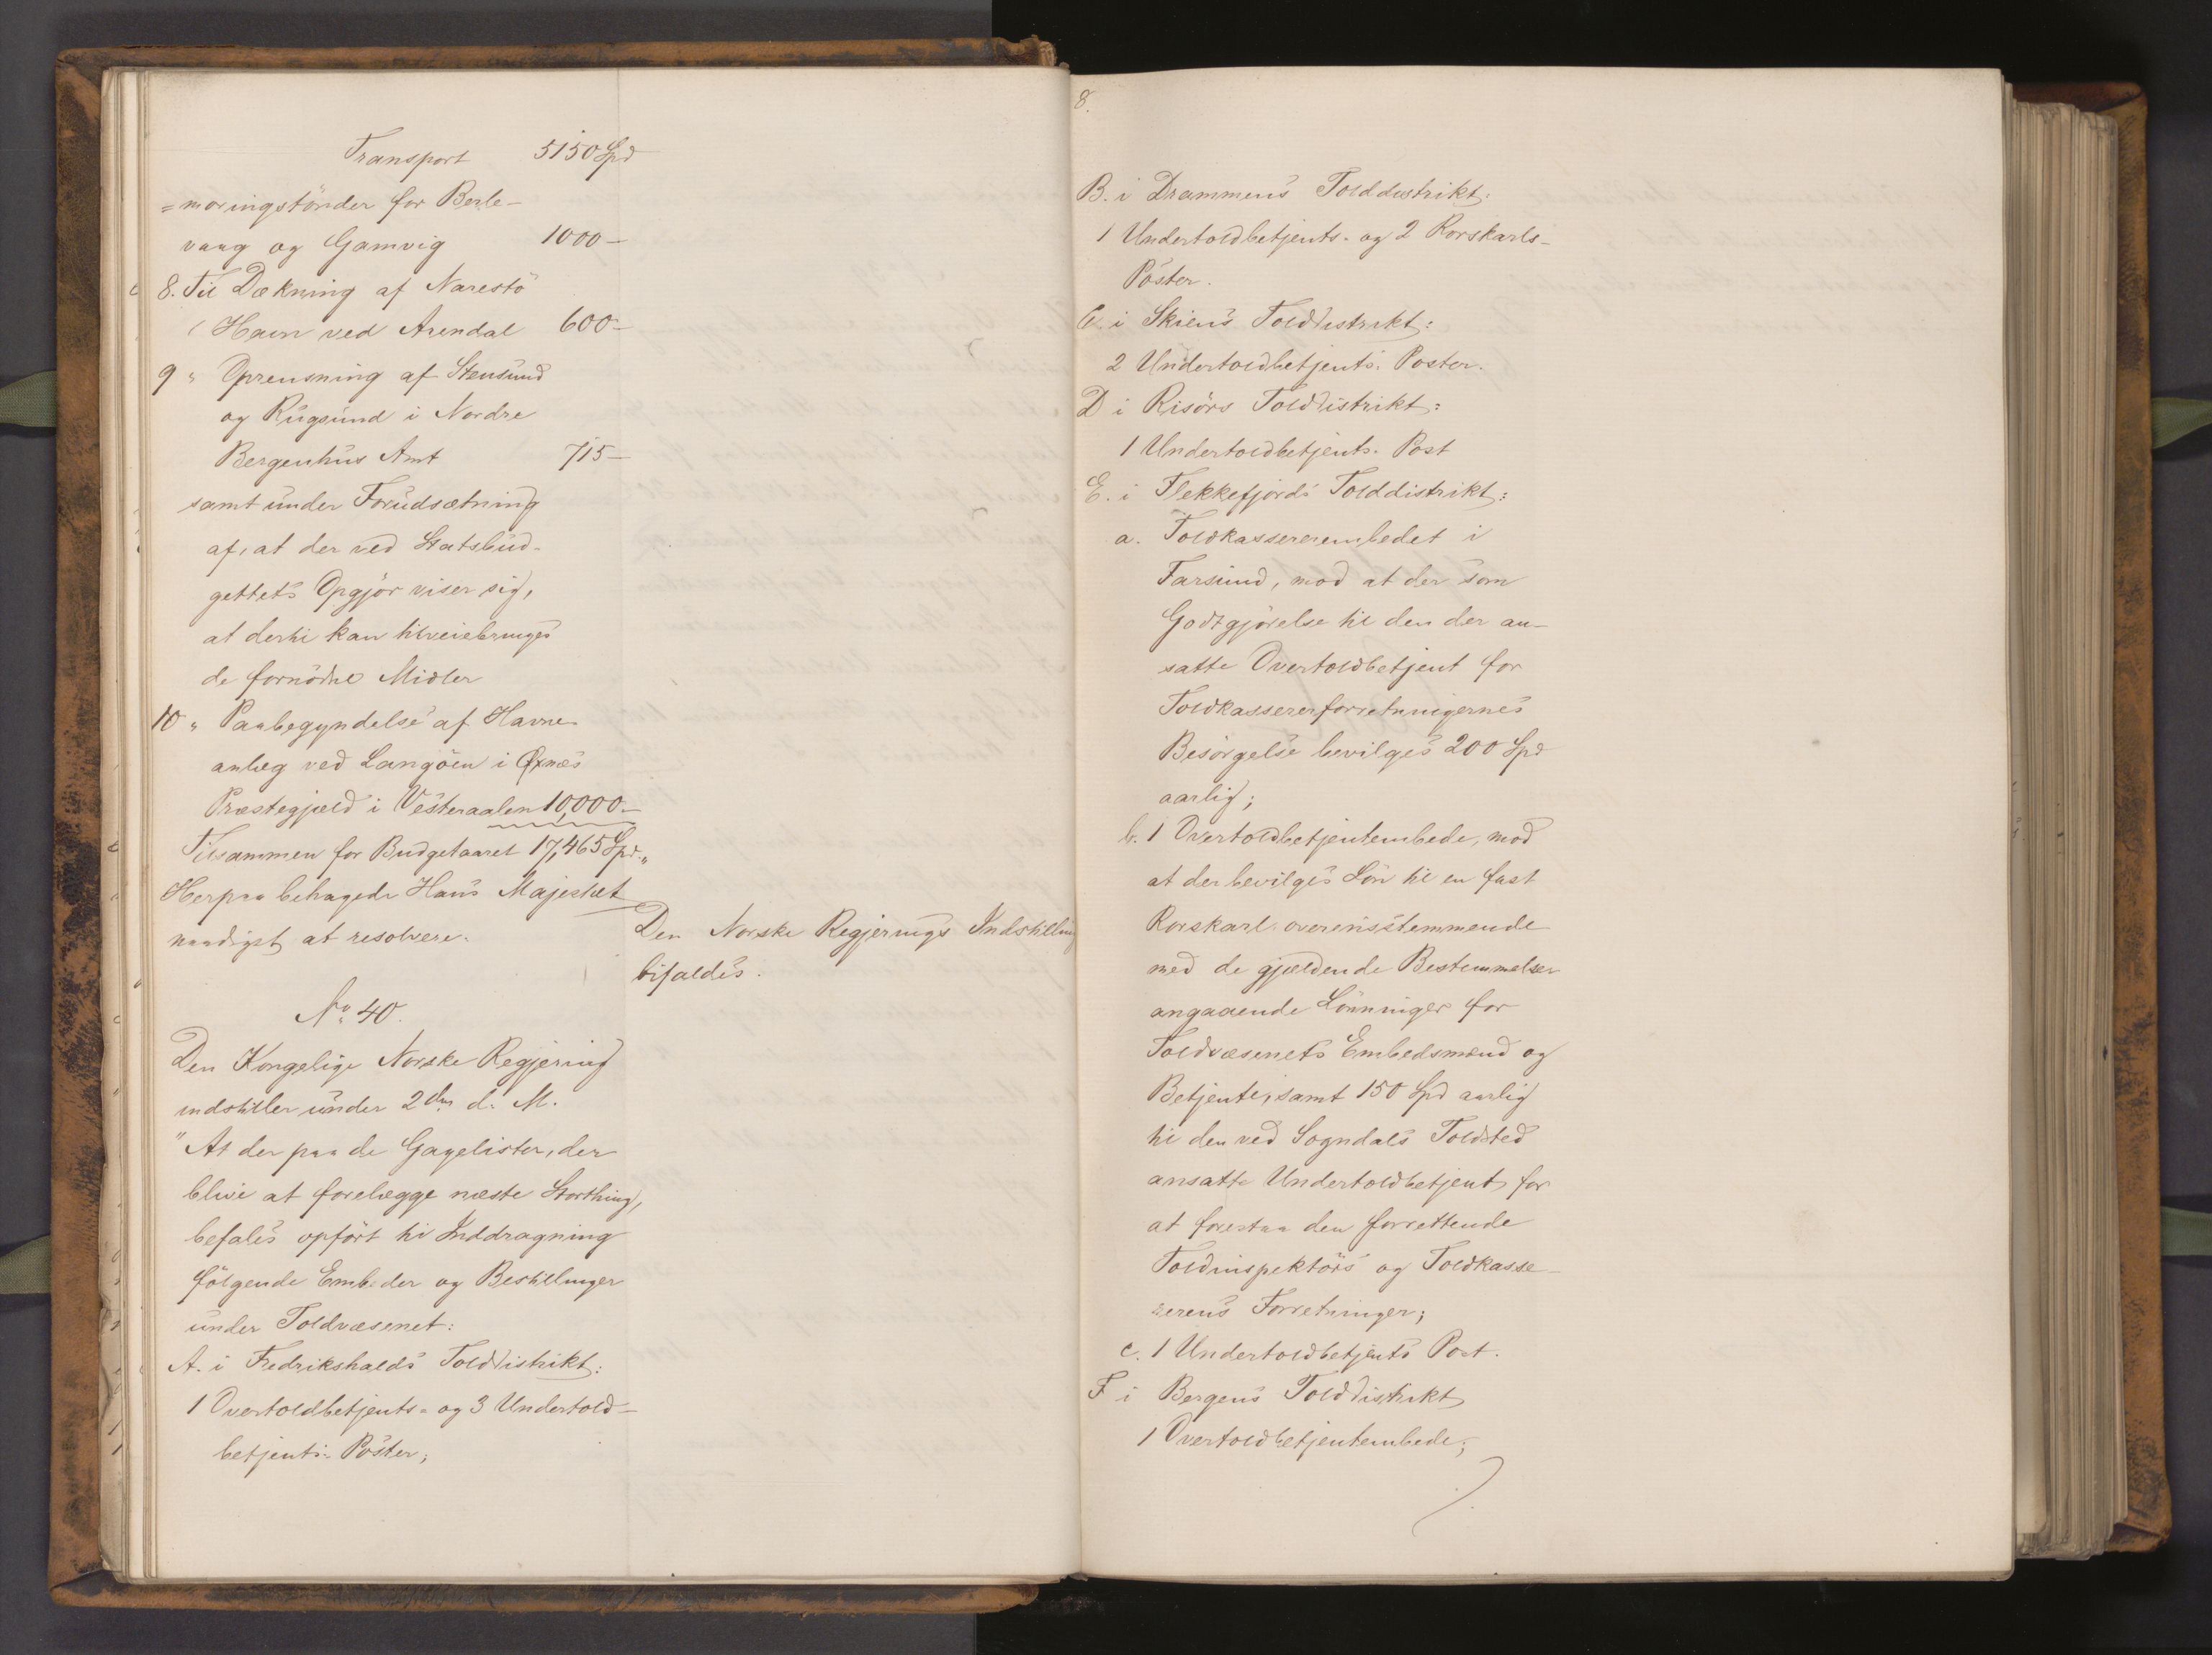 Transport 5150 Spd
=moringstönder for Berle-
vaag og Gamvig 1000 -
8. Til Dækning af Narestö
Havn ved Arendal 600 -
9 " Oprensning af Stensund
og Rugsund i Nordre
Bergenhus Amt 715 -
samt under Forudsætning
af, at der ved Statsbud-
gettets Opgjör viser sig,
at dertil kan tilveiebringes
de fornödne Midler
10 " Paabegyndelse af Havne-
anlæg ved Langöen i Öxnæs
Præstegjæld i Vesteraalen 10,000 -
Tilsammen for Budgetaaret 17,465 Spd. "
Herpaa behagede Hans Majestæt
naadigst at resolvere.
Den Norske Regjerings Indstilling
bifaldes.
No 40.
Den Kongelige Norske Regjering
indstiller under 2den d. M.
"At der paa de Gagelister, der
blive at forelægge næste Storthing,
befales opfört til Inddragning
fölgende Embeder og Bestillinger
under Toldvæsenet:
A. i Fredrikshalds Tolddistrikt:
1 Overtoldbetjents- og 3 Undertold-
betjents- Poster;
8.
B. i Drammens Tolddistrikt:
1 Undertoldbetjents- og 2 Rorskarls-
Poster.
C. i Skiens Tolddistrikt:
2 Undertoldbetjents- Poster.
D i Risörs Tolddistrikt:
1 Undertoldbetjents- Post
E. i Flekkefjords Tolddistrikt:
a. Toldkassererembedet i
Farsund, mod at der som
Godtgjörelse til den der an-
satte Overtoldbetjent for
Toldkassererforretningernes
Besörgelse bevilges 200 Spd
aarlig;
b. 1 Overtoldbetjentembede, mod
at der bevilges Lön til en fast
Rorskarl overensstemmende
med de gjældende Bestemmelser
angaaende Lönninger for
Toldvæsenets Embedsmænd og
Betjente, samt 150 Spd aarlig
til den ved Sogndals Toldsted
ansatte Undertoldbetjent for
at forestaa den forrettende
Toldinspektörs og Toldkasse-
rerens Forretninger;
c. 1 Undertoldbetjents Post.
F i Bergens Tolddistrikt
1 Overtoldbetjentembede;